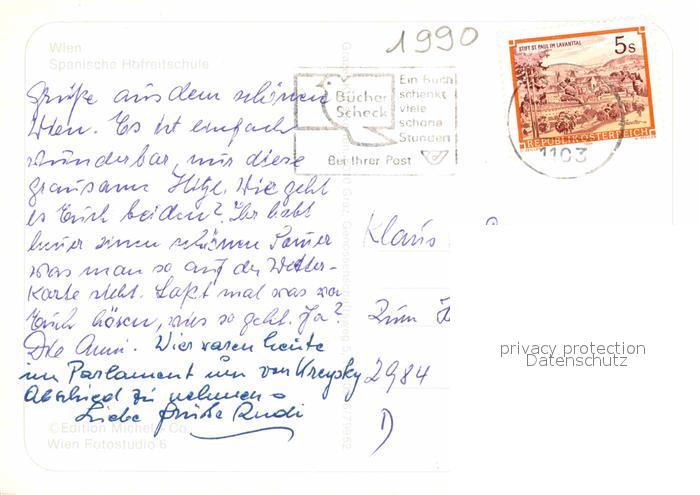 1990
Wien
Spanische Hofreitschule
Grüße aus dem schönen
Wien. Es ist einfach
wunderbar, nur diese
grausame Hitze. Wie geht
es Euch beiden? Ihr habt
heuer einen schönen Somer
was man so auf der Wetter-
Karte sieht. Laßt mal was von
Euch hören, wies so geht. Ja?
Die Anni. Wir waren heute
im Parlament um von Kreysky
Abschied zu nehmen
Liebe Grüße Rudi
©Edition Michel & Co.
Wien Fotostudio 6
Bücher
Scheck
Ein Buch
schenkt
viele
schöne
Stunden
Bei Ihrer Post
STIFT ST. PAUL IM LAVANTTAL
5s
REPUBLIK ÖSTERREICH
1103
Klaus
Zum
2984
D
privacy protection
Datenschutz